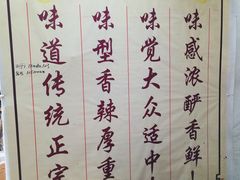 味感浓酽香鲜！
味觉大众适中！
味型香辣厚重
味道传统正宗